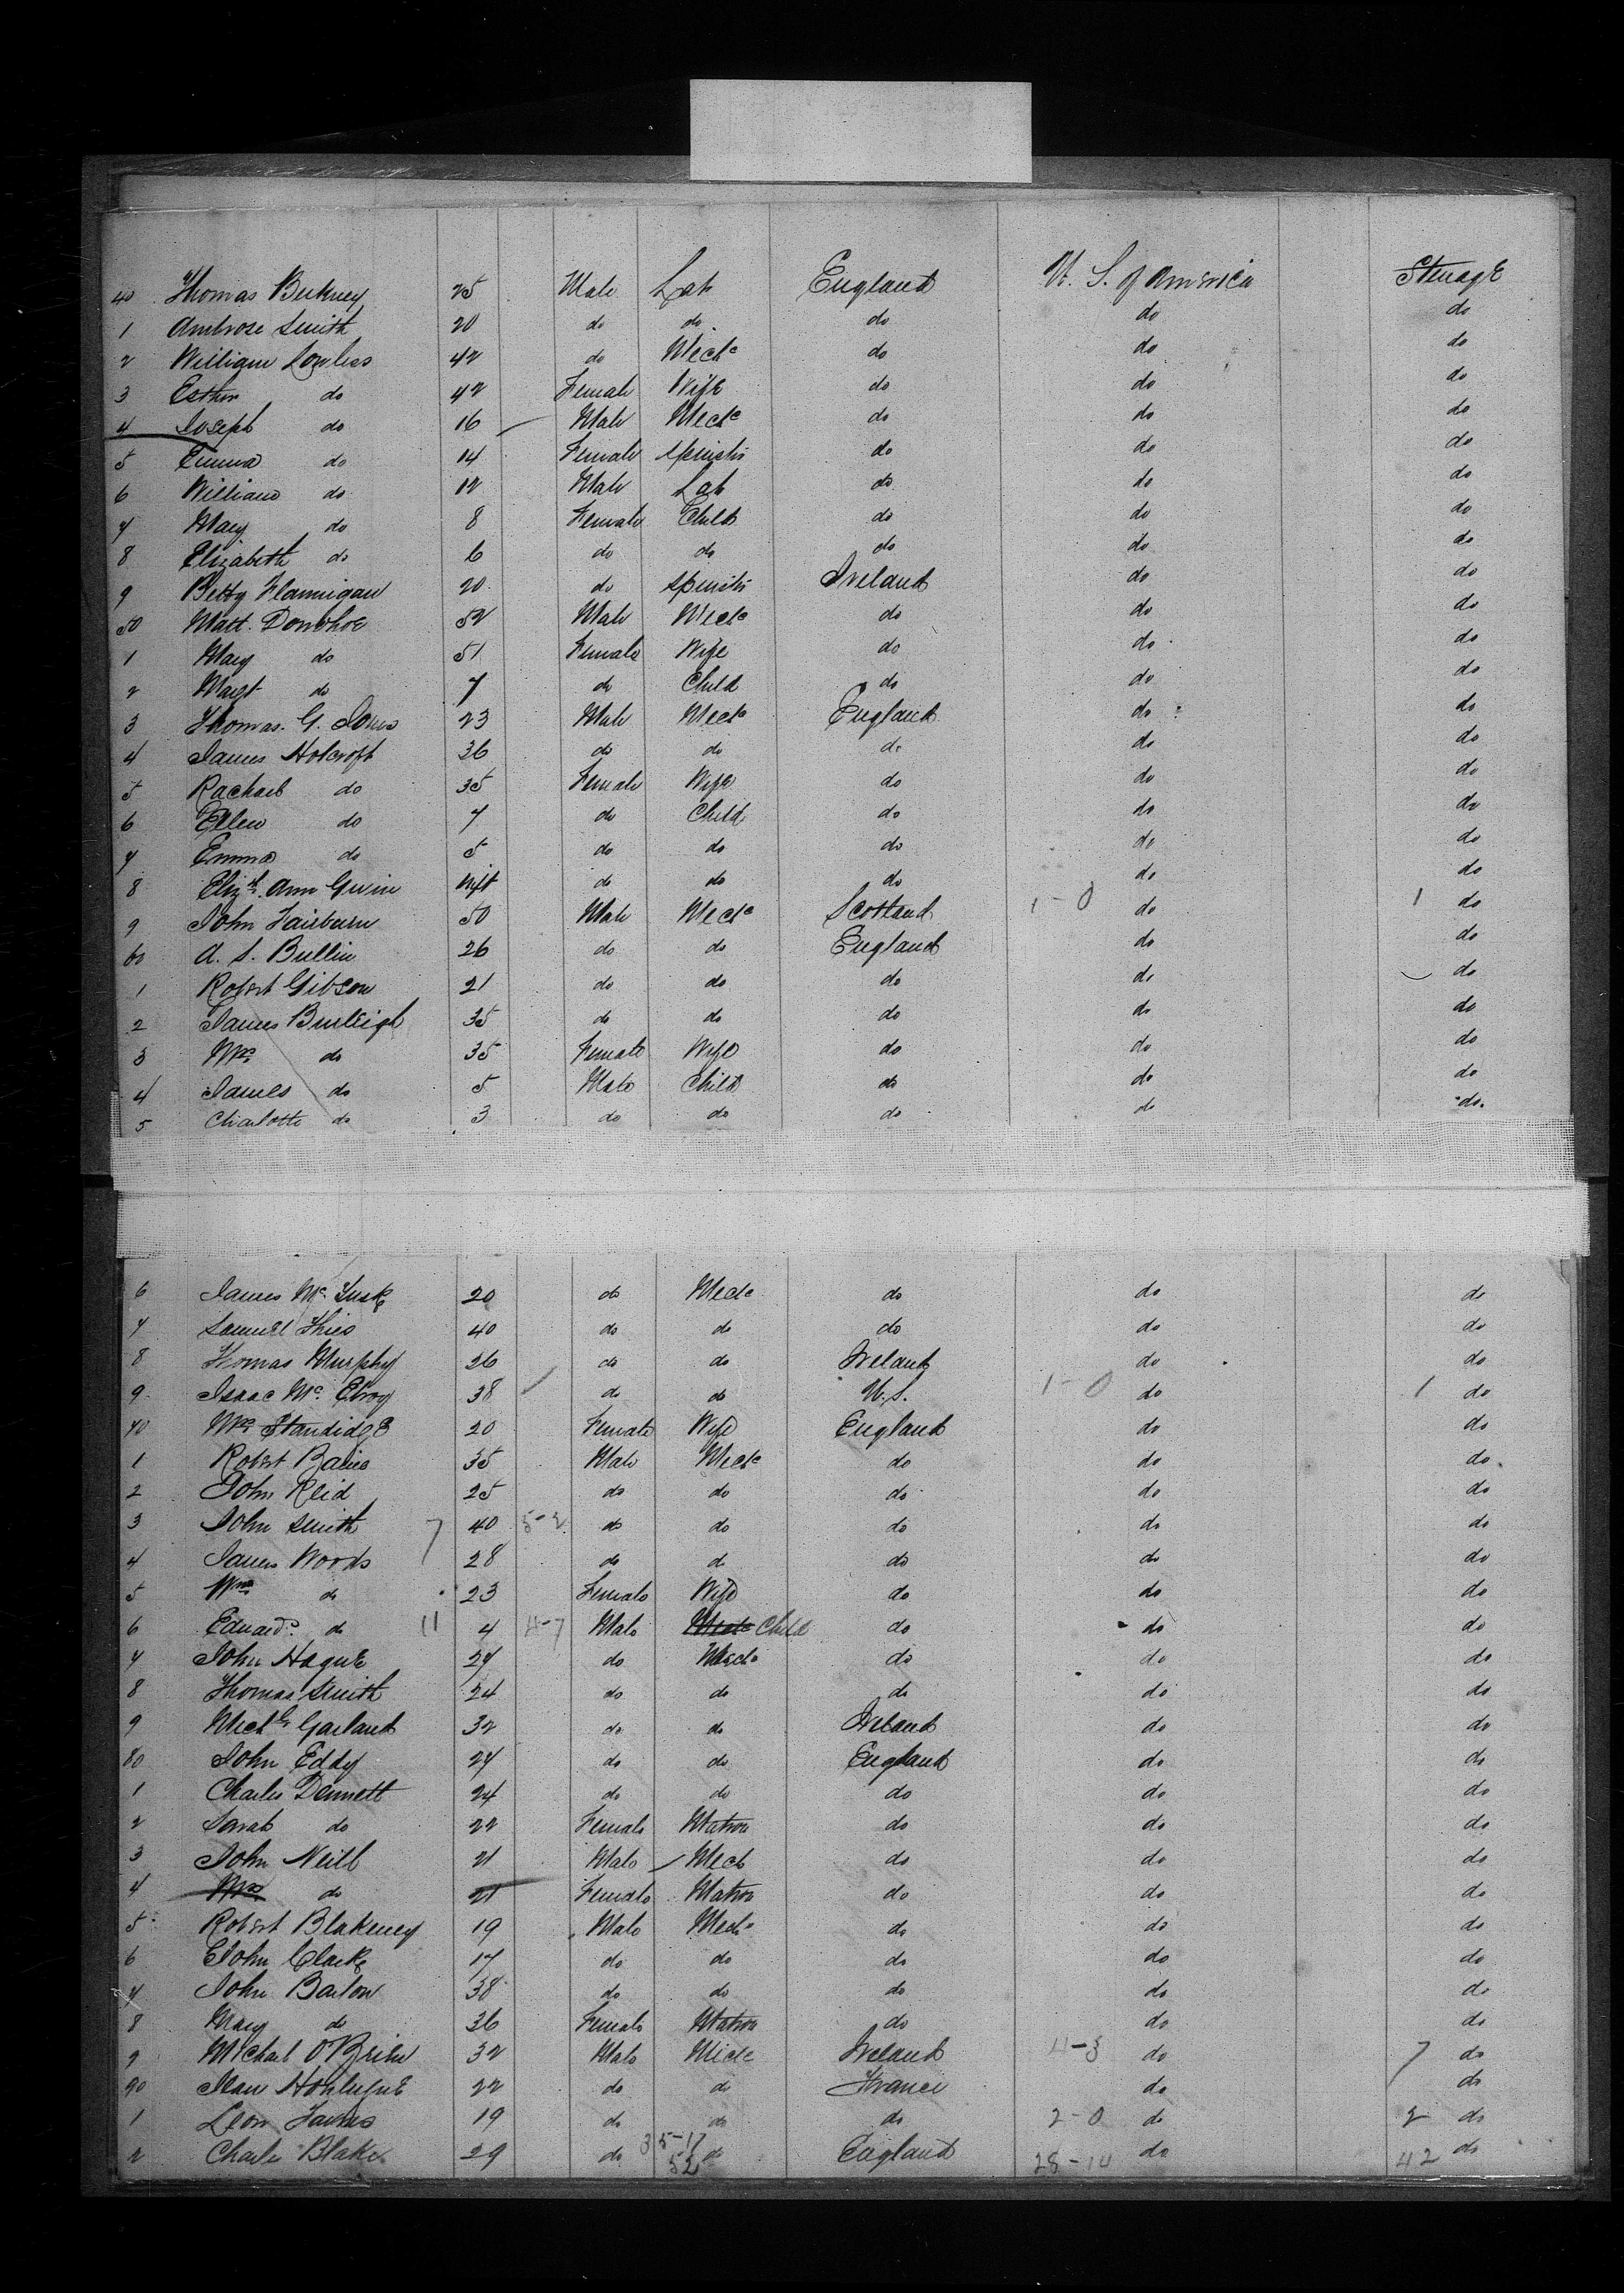 40 Thomas 25 Male Lab England U. S. of America Steerage
1 Ambrose Smith 20 do do do do do
2 William Lawless 42 do Mechc do do do
3 Esther do 42 Female Wife do do do
4 Joseph do 16 Male Mechc do do do
5 Emma do 14 Female Spinstr do do do
6 William do 12 Male Lab do do do
7 Mary do 8 Female Child do do do
8 Elizabeth do 6 do do do do do
9 Betty Flannigan 20 do Spinstr Ireland do do
50 Matt. Donohoe 52 Male Mechc do do do
1 Mary do 51 Female Wife do do do
2 Magt do 7 do Child do do do
3 Thomas. G. Jones 23 Male Mechc England do do
4 James Holcroft 36 do do do do do
5 Rachael do 35 Female Wife do do do
6 Ellen do 7 do Child do do do
7 Emma do 5 do do do do do
8 Elizth Ann Gwin Inft do do do do do
9 John Fairburn 50 Male Mechc Scotland 1-0 do 1 do
60 A. S. Bullin 26 do do England do do
1 Robert Gibson 21 do do do do do
2 James Burleigh 35 do do do do do
3 Mrs do 35 Female Wife do do do
4 James do 5 Male Child do do do
5 Charlotte do 3 do do do do do
6 James Mc 20 do Mechc do do do
7 Samuel 40 do do do do do
8 Thomas Murphy 26 do do Ireland do do
9 Isaac Mc Elroy 38 do do U.S. 1-0 do 1 do
70 Mrs Standidge 20 Female Wife England do do
1 Robert Bains 35 Male Mechc do do do
2 John Reid 25 do do do do do
3 John Smith 7 40 5-2 do do do do do
4 James Woods 28 do do do do do
5 Mrs do 23 Female Wife do do do
6 Edward do 11 4 4-7 Male Mechc Child do do do
7 John Hague 27 do Mechc do do do
8 Thomas Smith 24 do do do do do
9 Michl Garland 32 do do Ireland do do
80 John Eddy 27 do do England do do
1 Charles Dennett 24 do do do do do
2 Sarah do 22 Female Matron do do do
3 John Neill 21 Male Mech do do do
4 Mrs do 21 Female Matron do do do
5 Robert Blakeney 19 Male Mechc do do do
6 John Clark 17 do do do do do
7 John Barton 38 do do do do do
8 Mary do 36 Female Matron do do do
9 Michael O'Brien 32 Male Mechc Ireland 4-3 do 7 do
90 Jean 22 do do France do do
1 Leon 19 do do do 2-0 do 2 do
2 Charles Blake 29 do 35-17 52 do England 28-14 do 42 do